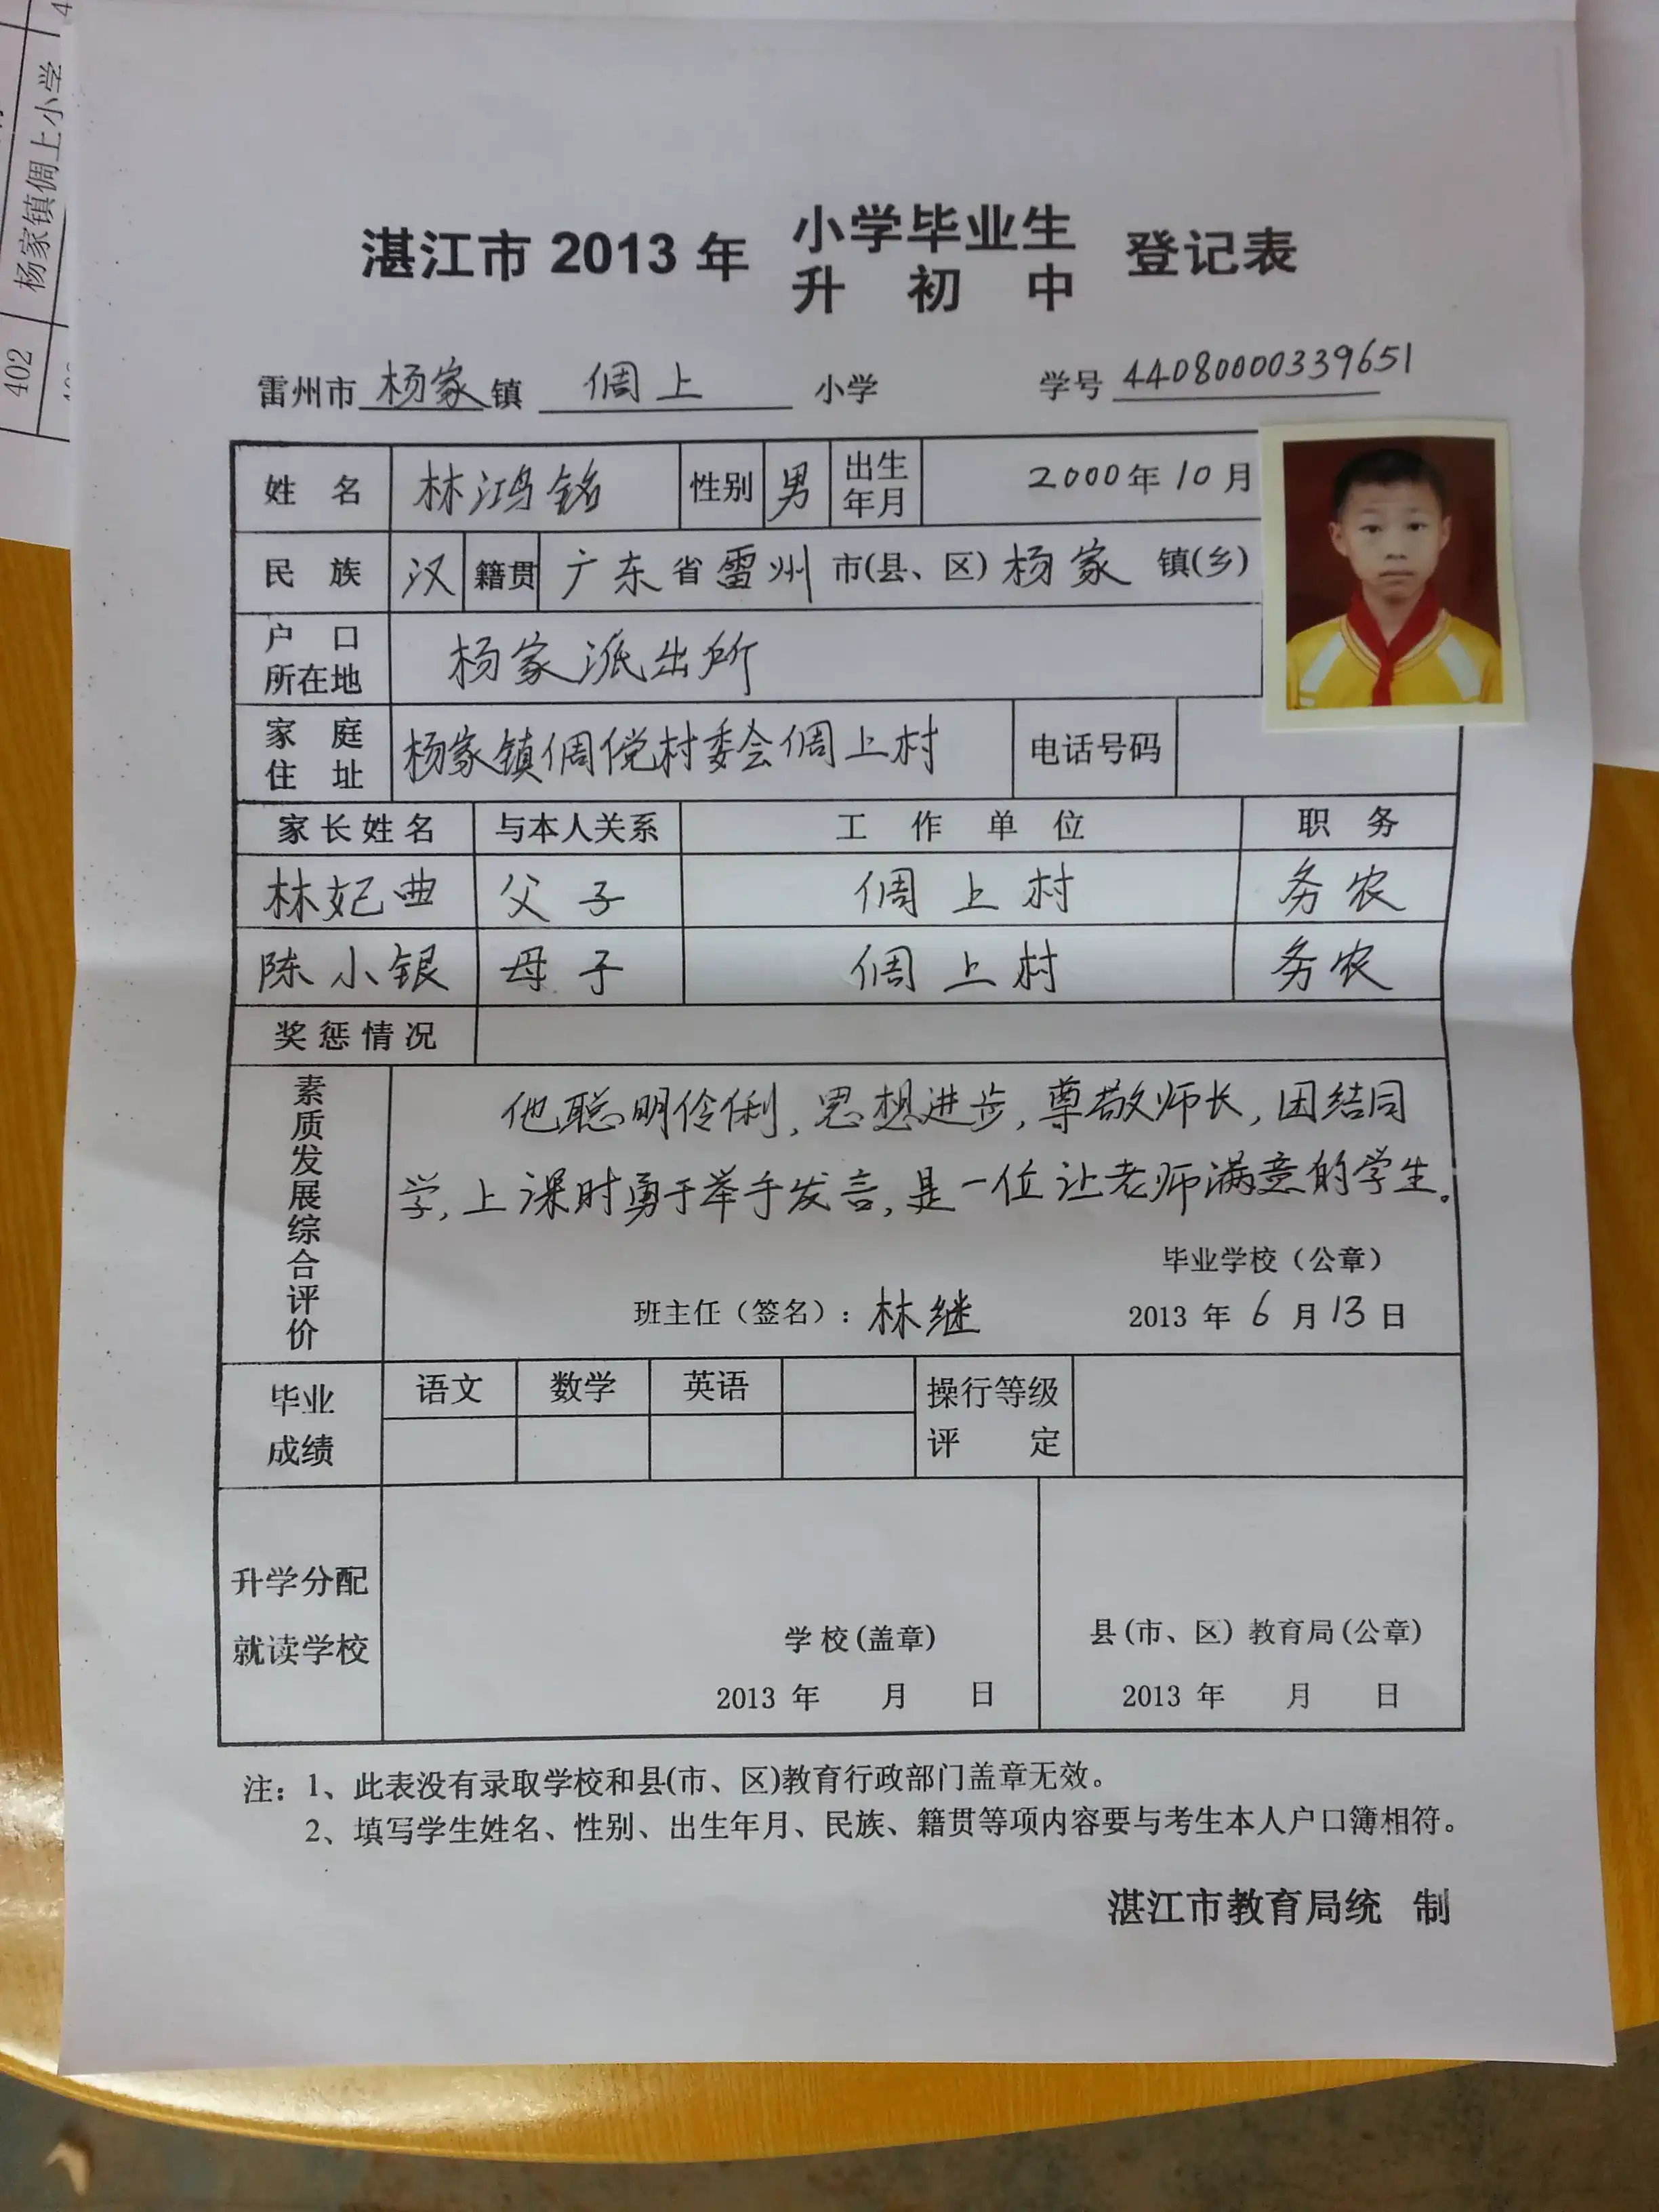 湛江市 2013 年 小学毕业生 登记表
升 初 中
雷州市 杨家 镇 倜上 小学 学号 44080000339651
姓 名 林鸿铭 性别 男 出生年月 2000 年 10 月
民 族 汉 籍贯 广东 省 雷州 市(县、区) 杨家 镇(乡)
户 口
所在地 杨家派出所
家 庭
住 址 杨家镇倜傥村委会倜上村 电话号码
家长姓名 与本人关系 工 作 单 位 职 务
林妃典 父子 倜上村 务农
陈小银 母子 倜上村 务农
奖惩情况
素质发展综合评价
他聪明伶俐,思想进步,尊敬师长,团结同
学,上课时勇于举手发言,是一位让老师满意的学生。
毕业学校（公章）
班主任（签名）: 林继 2013 年 6 月 13 日
毕业
成绩
语文 数学 英语 操行等级
评 定
升学分配
就读学校
学校(盖章) 县(市、区) 教育局(公章)
2013 年 月 日 2013 年 月 日
注: 1、此表没有录取学校和县(市、区)教育行政部门盖章无效。
2、填写学生姓名、性别、出生年月、民族、籍贯等项内容要与考生本人户口簿相符。
湛江市教育局统 制
402 杨家镇倜上小学